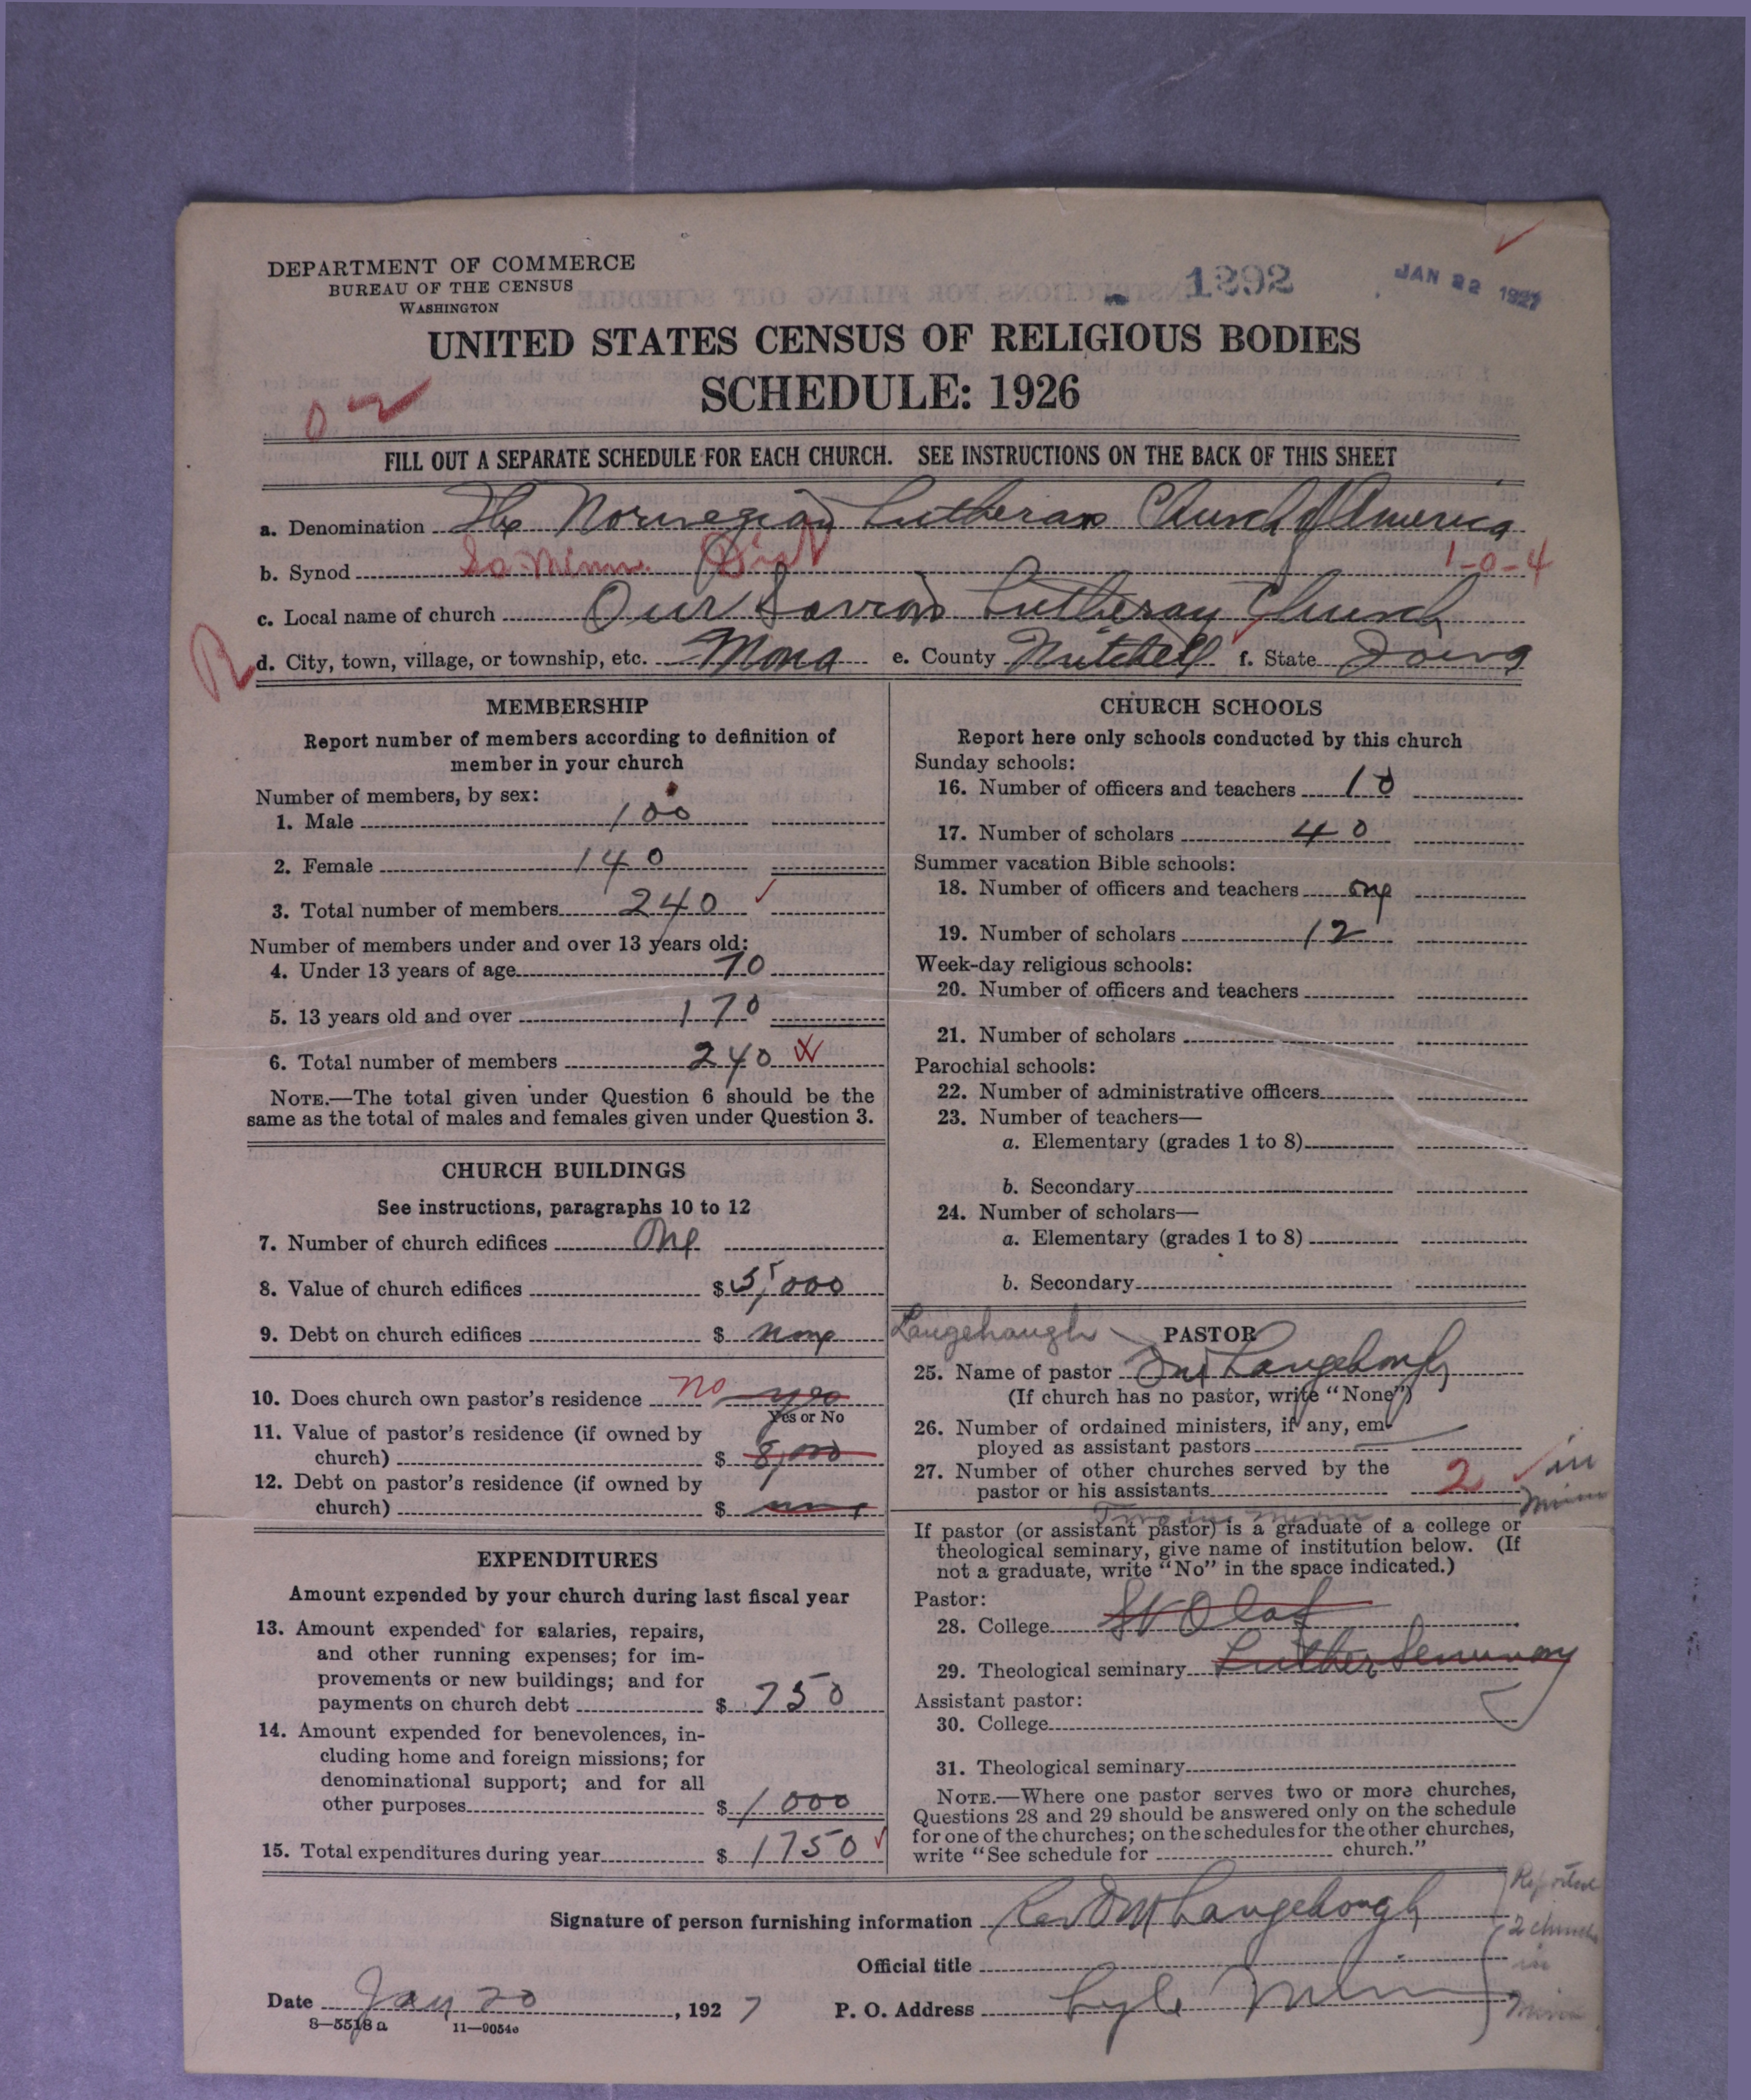 DEPARTMENT OF COMMERCE
BUREAU OF THE CENSUS
WASHINGTON
1292
JAN 22 1927
UNITED STATES CENSUS OF RELIGIOUS BODIES
SCHEDULE: 1926
FILL OUT A SEPARATE SCHEDULE FOR EACH CHURCH. SEE INSTRUCTIONS ON THE BACK OF THIS SHEET
a. Denomination The Norwegian Lutheran Church of America
b. Synod So. Minn. Dist 1-0-4
c. Local name of church Our Saviors Lutheran Church
R d. City, town, village, or township, etc. Mona e. County Mitchell f. State Iowa
MEMBERSHIP
Report number of members according to definition of
member in your church
Number of members, by sex:
1. Male 100
2. Female 140
3. Total number of members 240
Number of members under and over 13 years old:
4. Under 13 years of age 70
5. 13 years old and over 170
6. Total number of members 240
NOTE.—The total given under Question 6 should be the
same as the total of males and females given under Question 3.
CHURCH BUILDINGS
See instructions, paragraphs 10 to 12
7. Number of church edifices One
8. Value of church edifices $ 5,000
9. Debt on church edifices $ none
10. Does church own pastor's residence no yes
Yes or No
11. Value of pastor's residence (if owned by
church) $ 8,000
12. Debt on pastor's residence (if owned by
church) $ none
EXPENDITURES
Amount expended by your church during last fiscal year
13. Amount expended for salaries, repairs,
and other running expenses; for im-
provements or new buildings; and for
payments on church debt $ 750
14. Amount expended for benevolences, in-
cluding home and foreign missions; for
denominational support; and for all
other purposes $ 1000
15. Total expenditures during year $ 1750
CHURCH SCHOOLS
Report here only schools conducted by this church
Sunday schools:
16. Number of officers and teachers 10
17. Number of scholars 40
Summer vacation Bible schools:
18. Number of officers and teachers one
19. Number of scholars 12
Week-day religious schools:
20. Number of officers and teachers
21. Number of scholars
Parochial schools:
22. Number of administrative officers
23. Number of teachers—
a. Elementary (grades 1 to 8)
b. Secondary
24. Number of scholars—
a. Elementary (grades 1 to 8)
b. Secondary
Langehaugh PASTOR
25. Name of pastor Langehough
(If church has no pastor, write "None")
26. Number of ordained ministers, if any, em-
ployed as assistant pastors
27. Number of other churches served by the
pastor or his assistants 2 in
Minn
If pastor (or assistant pastor) is a graduate of a college or
theological seminary, give name of institution below. (If
not a graduate, write "No" in the space indicated.)
Pastor:
28. College St Olaf
29. Theological seminary Luther Seminary
Assistant pastor:
30. College
31. Theological seminary
NOTE.—Where one pastor serves two or more churches,
Questions 28 and 29 should be answered only on the schedule
for one of the churches; on the schedules for the other churches,
write "See schedule for church."
Signature of person furnishing information Rev Langehough
Official title
Date Jan 20, 1927 P. O. Address Lyle Minn
Reported
2 churches
in
Minn
8—5518 a 11—9054c